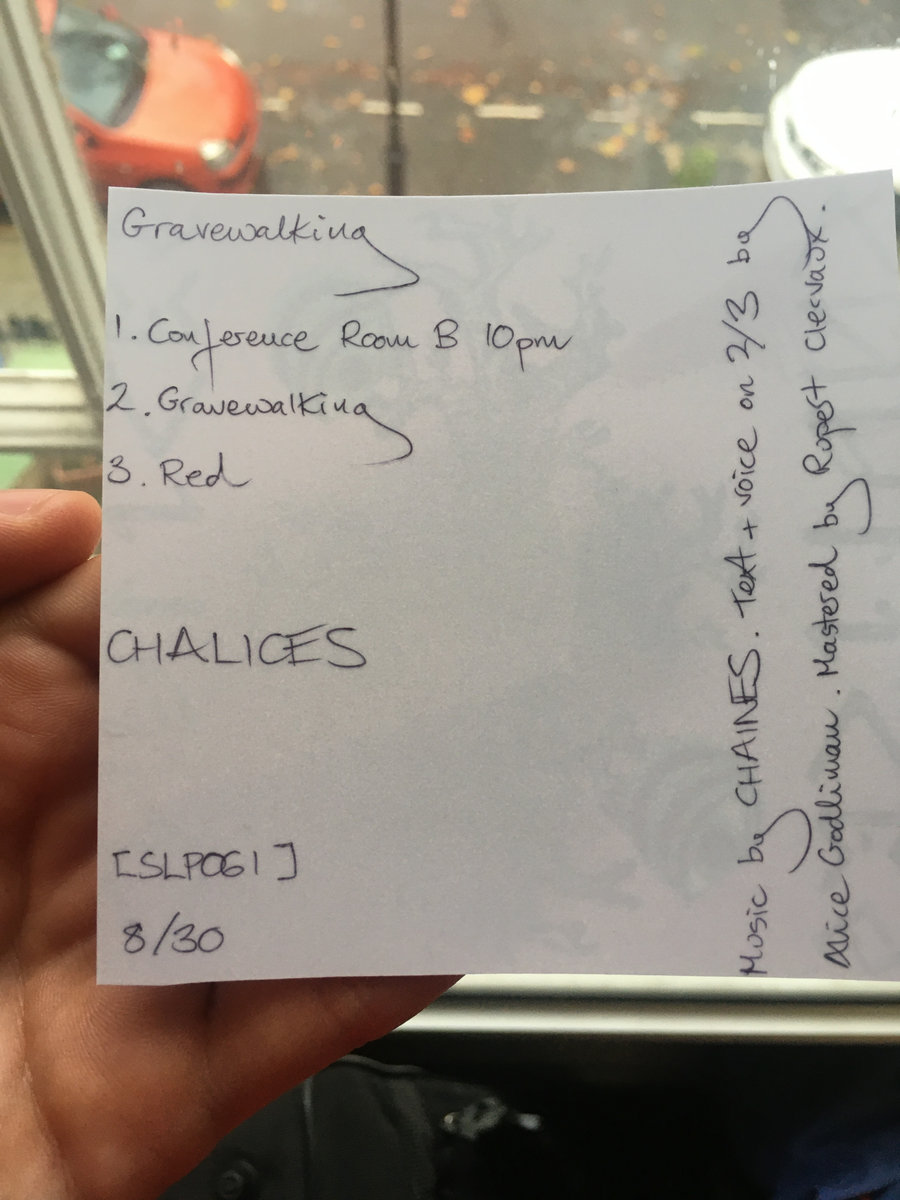 Gravewalking
1. Conference Room B 10pm
2. Gravewalking
3. Red
CHALICES
[SLP061]
8/30
Music by CHAINES. Text + voice on 2/3 by
Alice Godliman. Mastered by Rupert Clervaux.